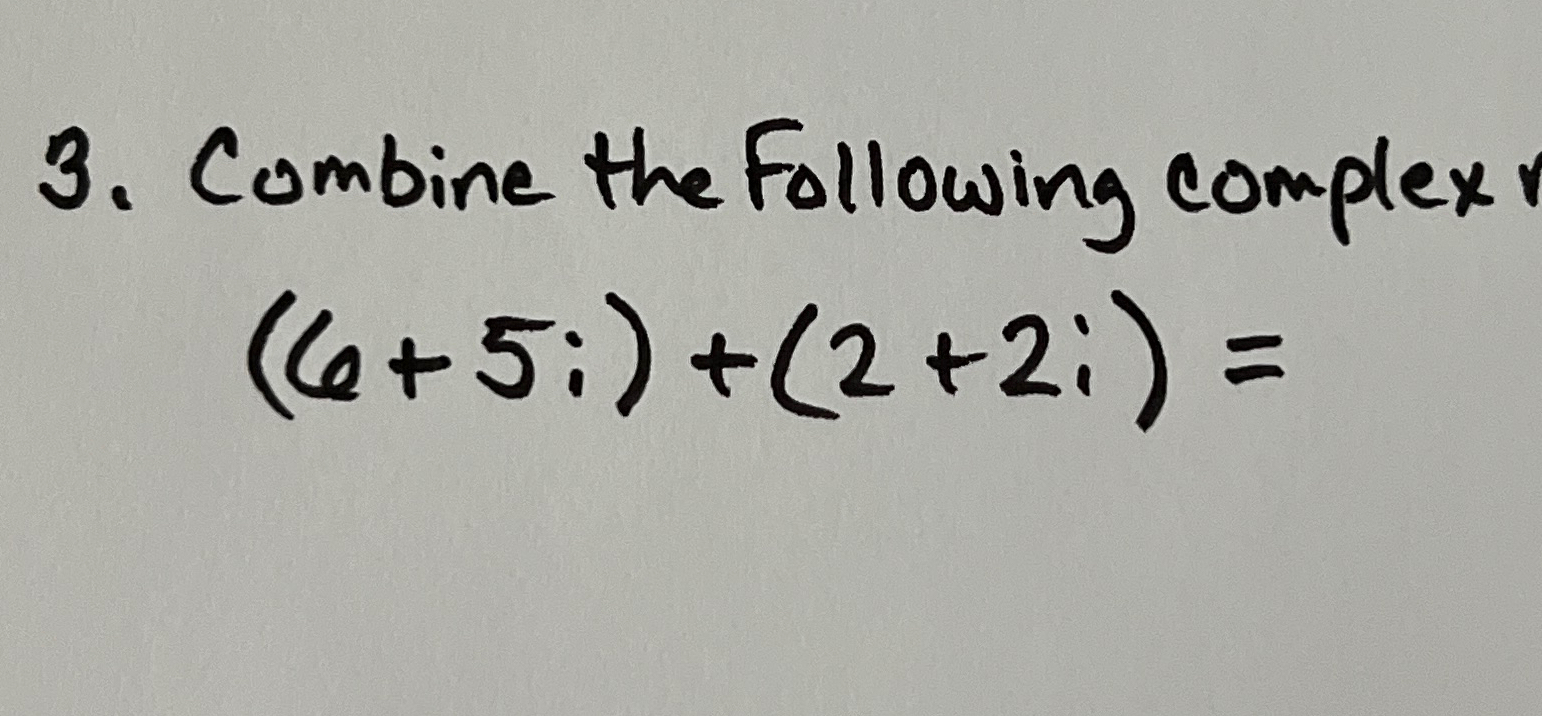 3. Combine the Following complex
(6+5i)+(2+2i)=